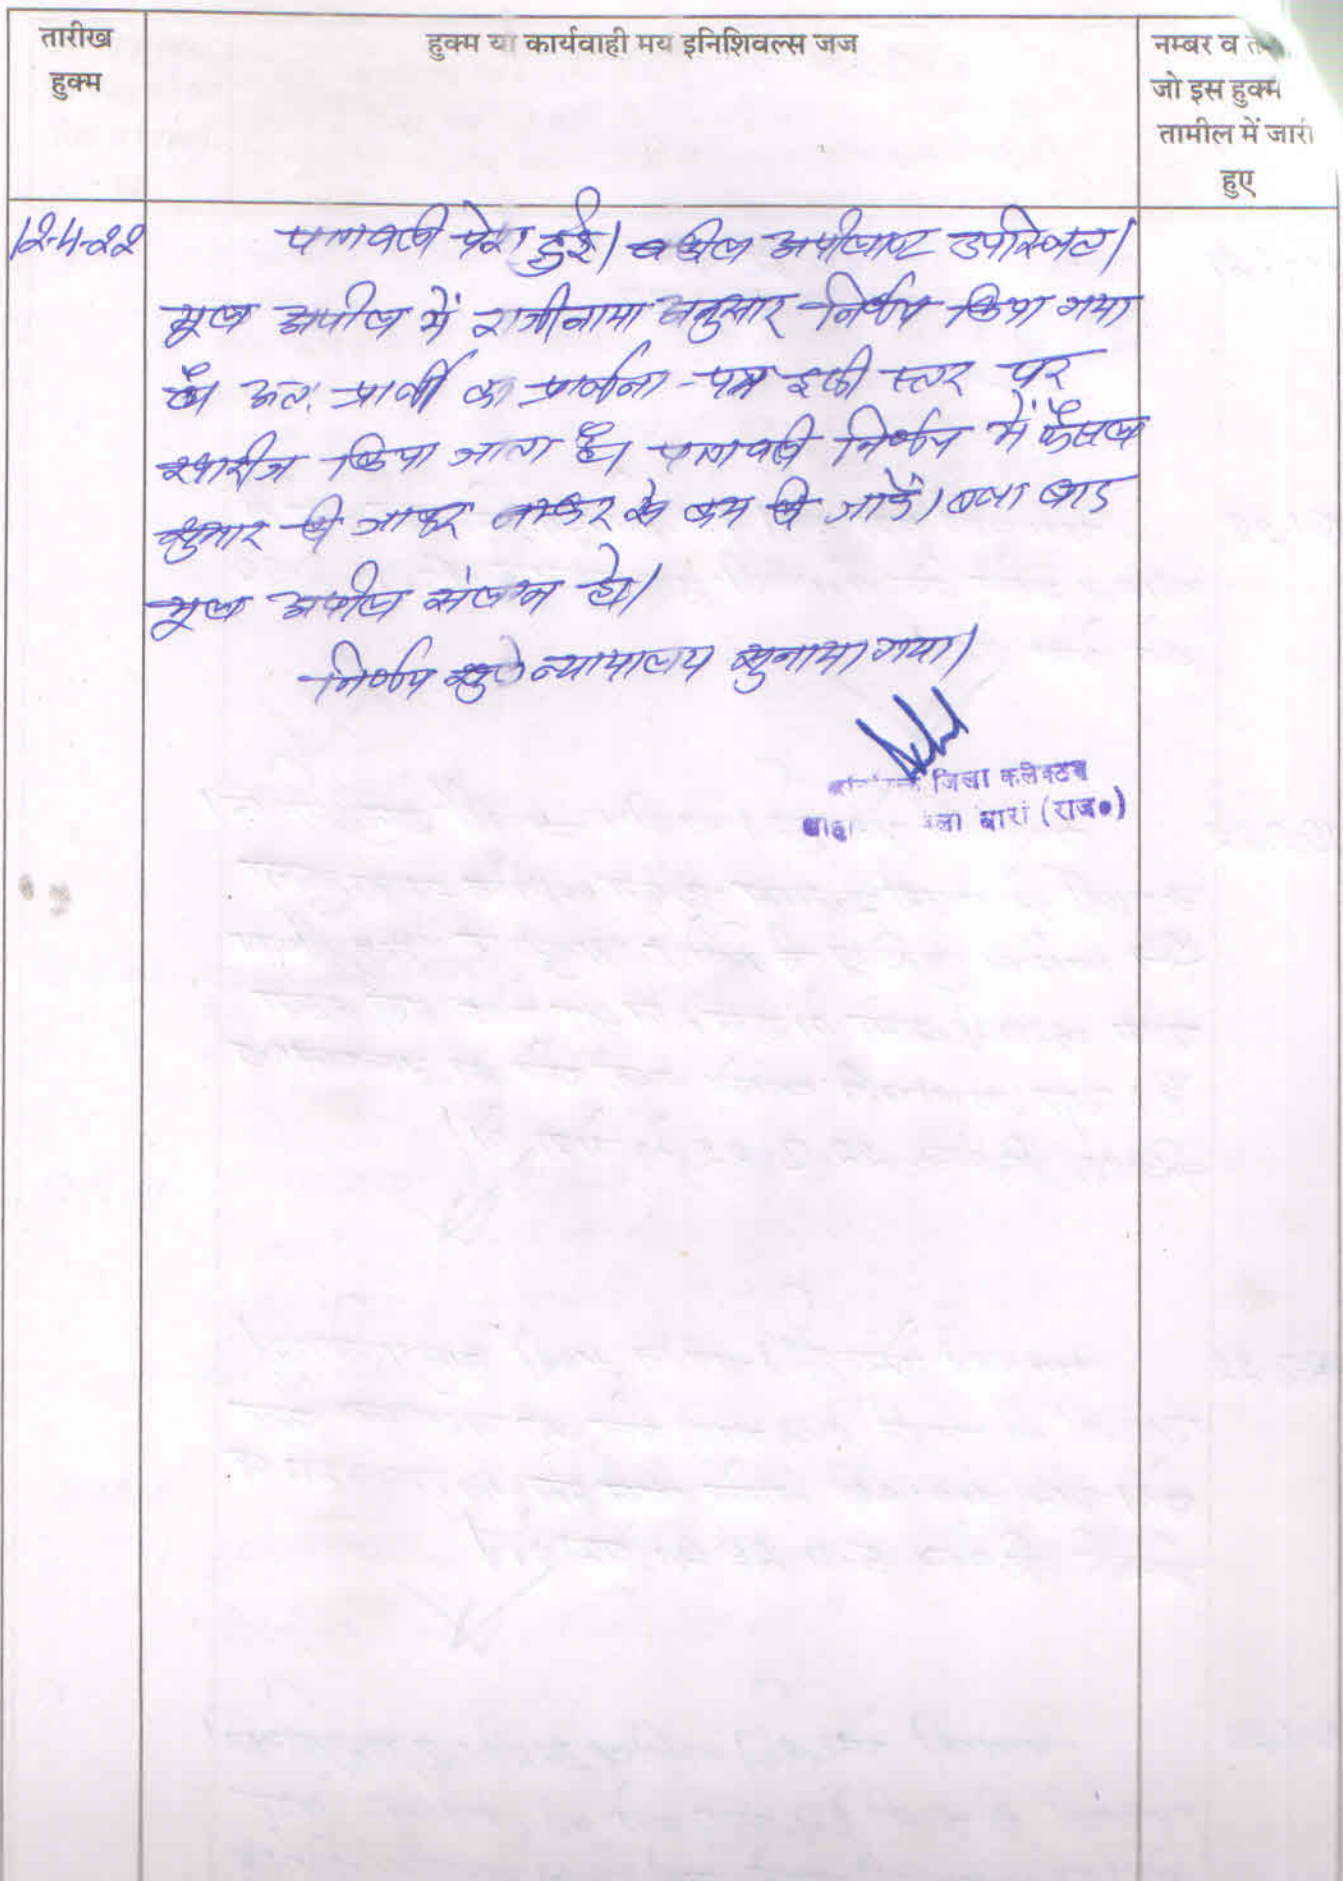 तारीख
हुक्म
हुक्म या कार्यवाही मय इनिशिवल्स जज
नम्बर व
जो इस हुक्म
तामील में जारी
हुए
12-4-22
पत्रावली पेश हुई। वकील अपीलाण्ट उपस्थित।
मूल अपील में राजीनामा अनुसार निर्णय किया गया
है अतः प्रार्थी का प्रार्थना-पत्र इसी स्तर पर
खारीज किया जाता है। पत्रावली निर्णय में फैसल
शुमार की जाकर नम्बर से कम की जावें।
मूल अपील संलग्न हो।
निर्णय खुले न्यायालय सुनाया गया।
जिला कलेक्टर
बारां (राज०)